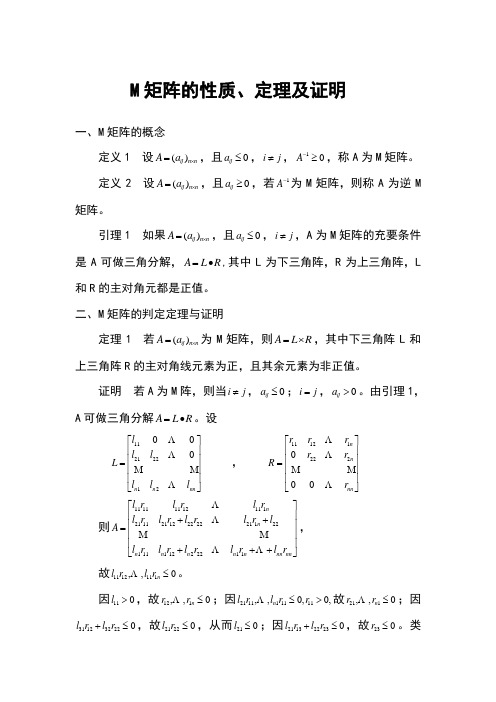 M矩阵的性质、定理及证明
一、M矩阵的概念
定义1 设A=(a_{ij})_{n×n}，且a_{ij}≤0，i≠j，A^{-1}≥0，称A为M矩阵。
定义2 设A=(a_{ij})_{n×n}，且a_{ij}≥0，若A^{-1}为M矩阵，则称A为逆M
矩阵。
引理1 如果A=(a_{ij})_{n×n}，且a_{ij}≤0，i≠j，A为M矩阵的充要条件
是A可做三角分解，A=L•R,其中L为下三角阵，R为上三角阵，L
和R的主对角元都是正值。
二、M矩阵的判定定理与证明
定理1 若A=(a_{ij})_{n×n}为M矩阵，则A=L×R，其中下三角阵L和
上三角阵R的主对角线元素为正，且其余元素为非正值。
证明 若A为M阵，则当i≠j，a_{ij}≤0；i=j，a_{ij}>0。由引理1，
A可做三角分解A=L•R。设
L=[l_{11} 0 0; l_{21} l_{22} Λ 0; M M; l_{n1} l_{n2} Λ l_{nn}] ， R=[r_{11} r_{12} Λ r_{1n}; 0 r_{22} Λ r_{2n}; M M; 0 0 Λ r_{nn}]
则A=[l_{11}r_{11} l_{11}r_{12} Λ l_{11}r_{1n}; l_{21}r_{11} l_{21}r_{12}+l_{22}r_{22} l_{21}r_{1n}+l_{22}; M M; l_{n1}r_{11} l_{n1}r_{12}+l_{n2}r_{22} l_{n1}r_{1n}+Λ+l_{nn}r_{nn}]，
故l_{11}r_{12},Λ,l_{11}r_{1n}≤0。
因l_{11}>0，故r_{12},Λ,r_{1n}≤0；因l_{21}r_{11},Λ,l_{n1}r_{11}≤0,r_{11}>0,故r_{21},Λ,r_{n1}≤0；因
l_{31}r_{12}+l_{32}r_{22}≤0，故l_{21}r_{22}≤0，从而l_{21}≤0；因l_{21}r_{13}+l_{22}r_{23}≤0，故r_{23}≤0。类